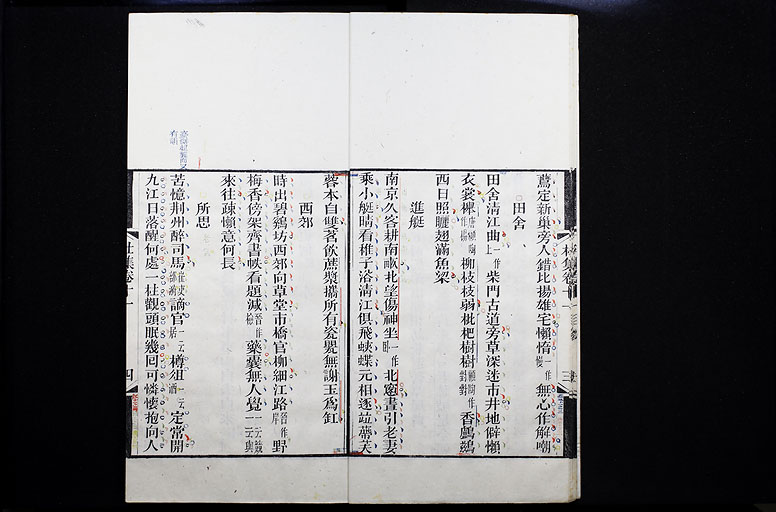 鷰定新巢旁人錯比揚雄宅懶惰一作無心作解嘲
田舍
田舍清江曲一作柴門古道旁草深迷市井地僻懶
衣裳櫸柳枝枝弱枇杷樹樹香鸕鷀
西日照曬翅滿魚梁
進艇
南京久客耕南畝北望傷神坐一作臥北窻晝引老妻
乘小艇晴看稚子浴清江俱飛蛺蝶元相逐竝蔕芙
蓉本自雙茗飲蔗漿攜所有瓷甖無謝玉爲缸
西郊
時出碧鷄坊西郊向草堂市橋官柳細江路晉作岸野
梅香傍架齊書帙看題減晉作檢藥囊無人覺一云
來往疎懶意何長
所思
苦憶荆州醉司馬謫官一云居樽俎一云酒定常開
九江日落醒何處一柱觀頭眠幾回可憐懷抱向人
杜集卷十一
四